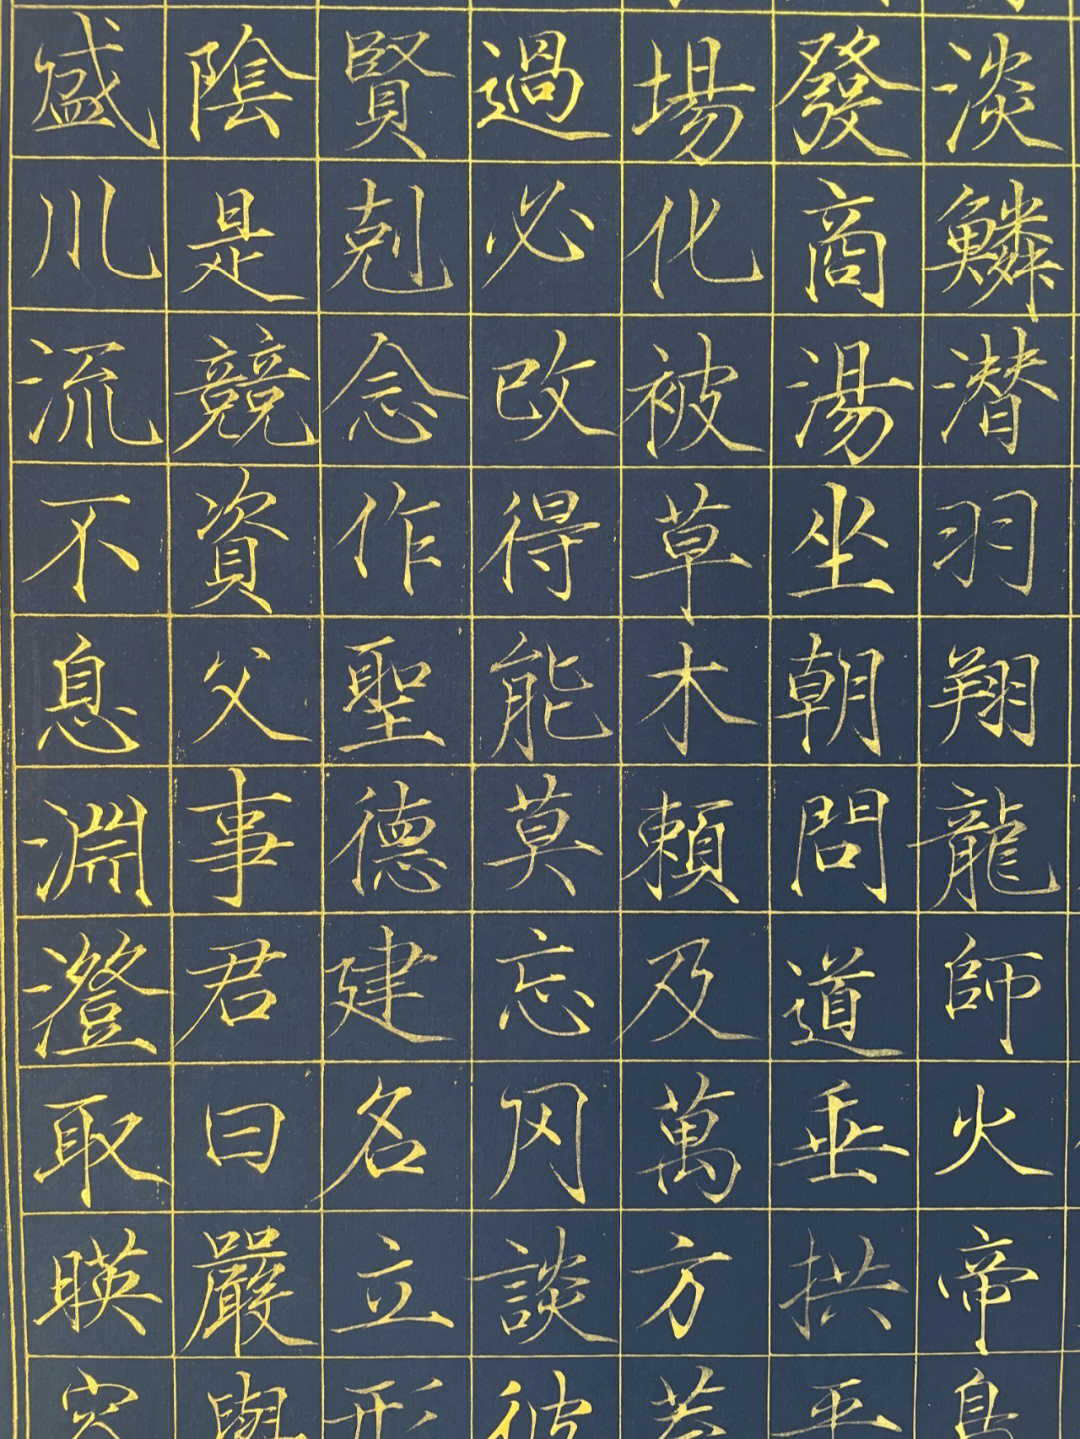 淡鱗潜羽翔龍師火帝鳥
發商湯坐朝問道垂拱平
場化被草木頼及萬方蓋
過必改得能莫忘罔談彼
賢剋念作聖德建名立形
陰是競資父事君曰嚴與
盛川流不息淵澄取暎容